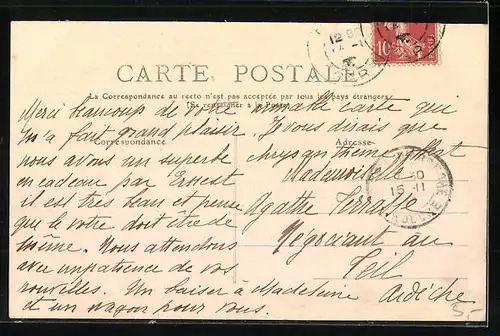 CARTE POSTALE
La Correspondance au recto n'est pas acceptée par tous les pays étrangers
(Se renseigner à la Poste)
Correspondance
Adresse
Merci beaucoup de votre aimable carte qui
m'a fait grand plaisir. Je vous dirais que
nous avons un superbe chrysanthème
en cadeau par Ernest
il est très beau et pense
que le votre doit être de
même. Nous attendons
avec impatience de vos
nouvelles. Un baiser à Madeleine
et un wagon pour vous.
Mademoiselle
Agathe Terrasse
Négociant au
Teil
Ardèche
10
12
15 - 11
5-